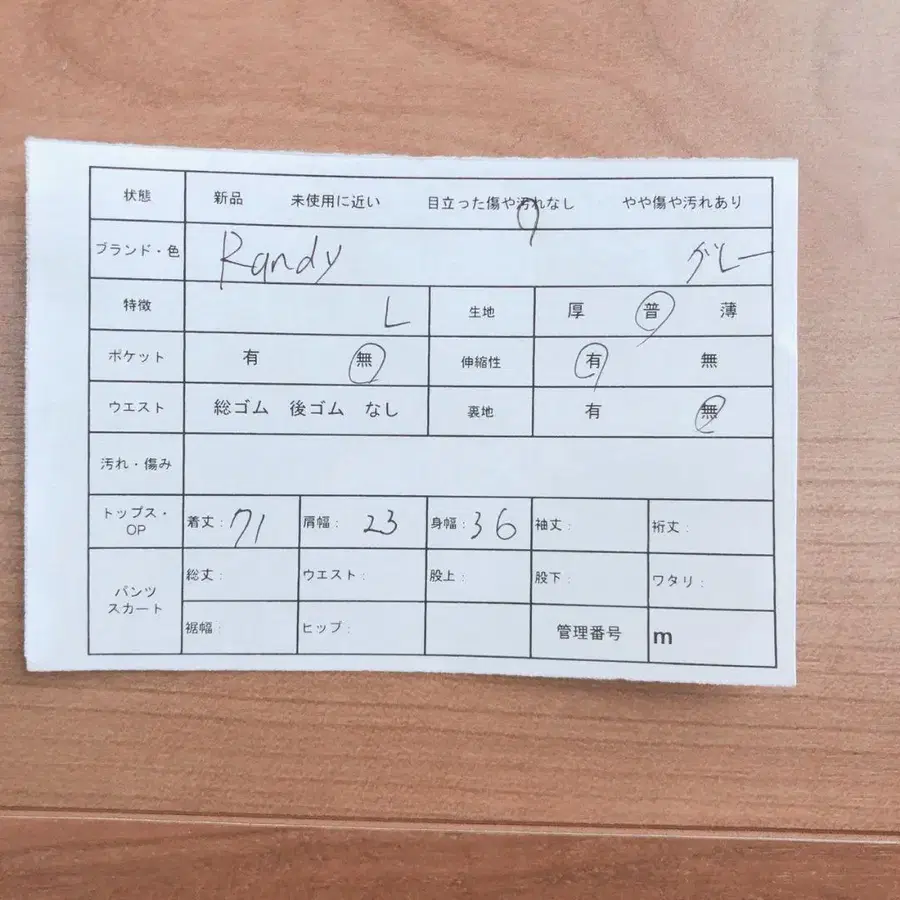 状態 新品 未使用に近い 目立った傷や汚れなし やや傷や汚れあり
ブランド・色 Randy グレー
特徴 L 生地 厚 普 薄
ポケット 有 無 伸縮性 有 無
ウエスト 総ゴム 後ゴム なし 裏地 有 無
汚れ・傷み
トップス・OP 着丈: 71 肩幅: 23 身幅: 36 袖丈: 裄丈:
パンツ スカート 総丈: ウエスト: 股上: 股下: ワタリ:
裾幅: ヒップ: 管理番号 m